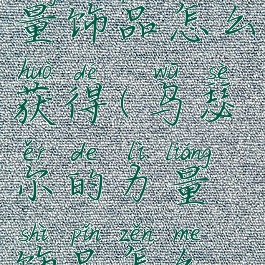 量饰品怎么
huò dé wū sè
获得(乌瑟
ěr de lì liàng
尔的力量
shì pǐn zěn me
饰品怎么